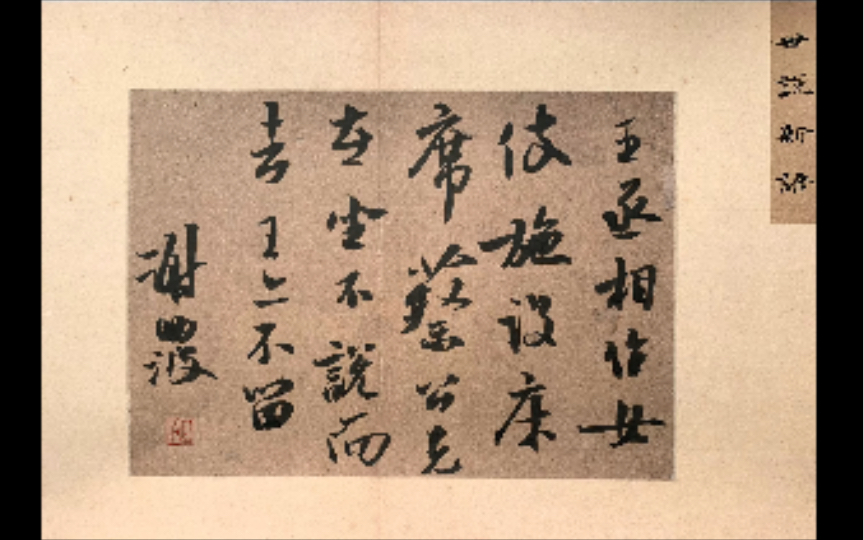 世說新語
王丞相作女
伎施設床
席蔡公先
在坐不說而
去王亦不留
謝